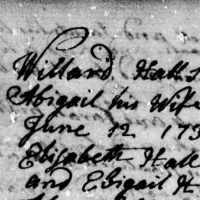 Willard Hall
Abigail his Wife
June 12 173
Elisabeth Hall
and Ebigail H